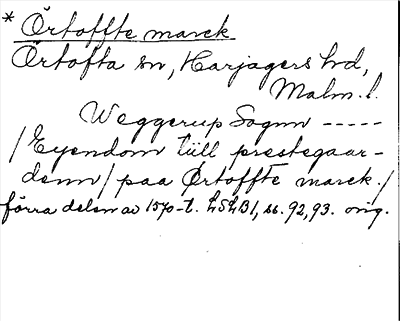 * Örtoffte marck
Örtofta sn, Harjagers hd,
Malm. l.
Weggerup Sognn -----
/Eyendom till prestegaar-
denn/ paa Ørtoffte marck./
förra delen av 1570-t. LSLB1, ss. 92,93. orig.